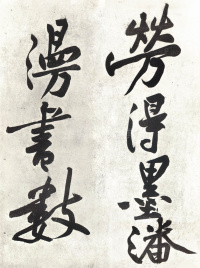 勞得墨瀋
漫書數